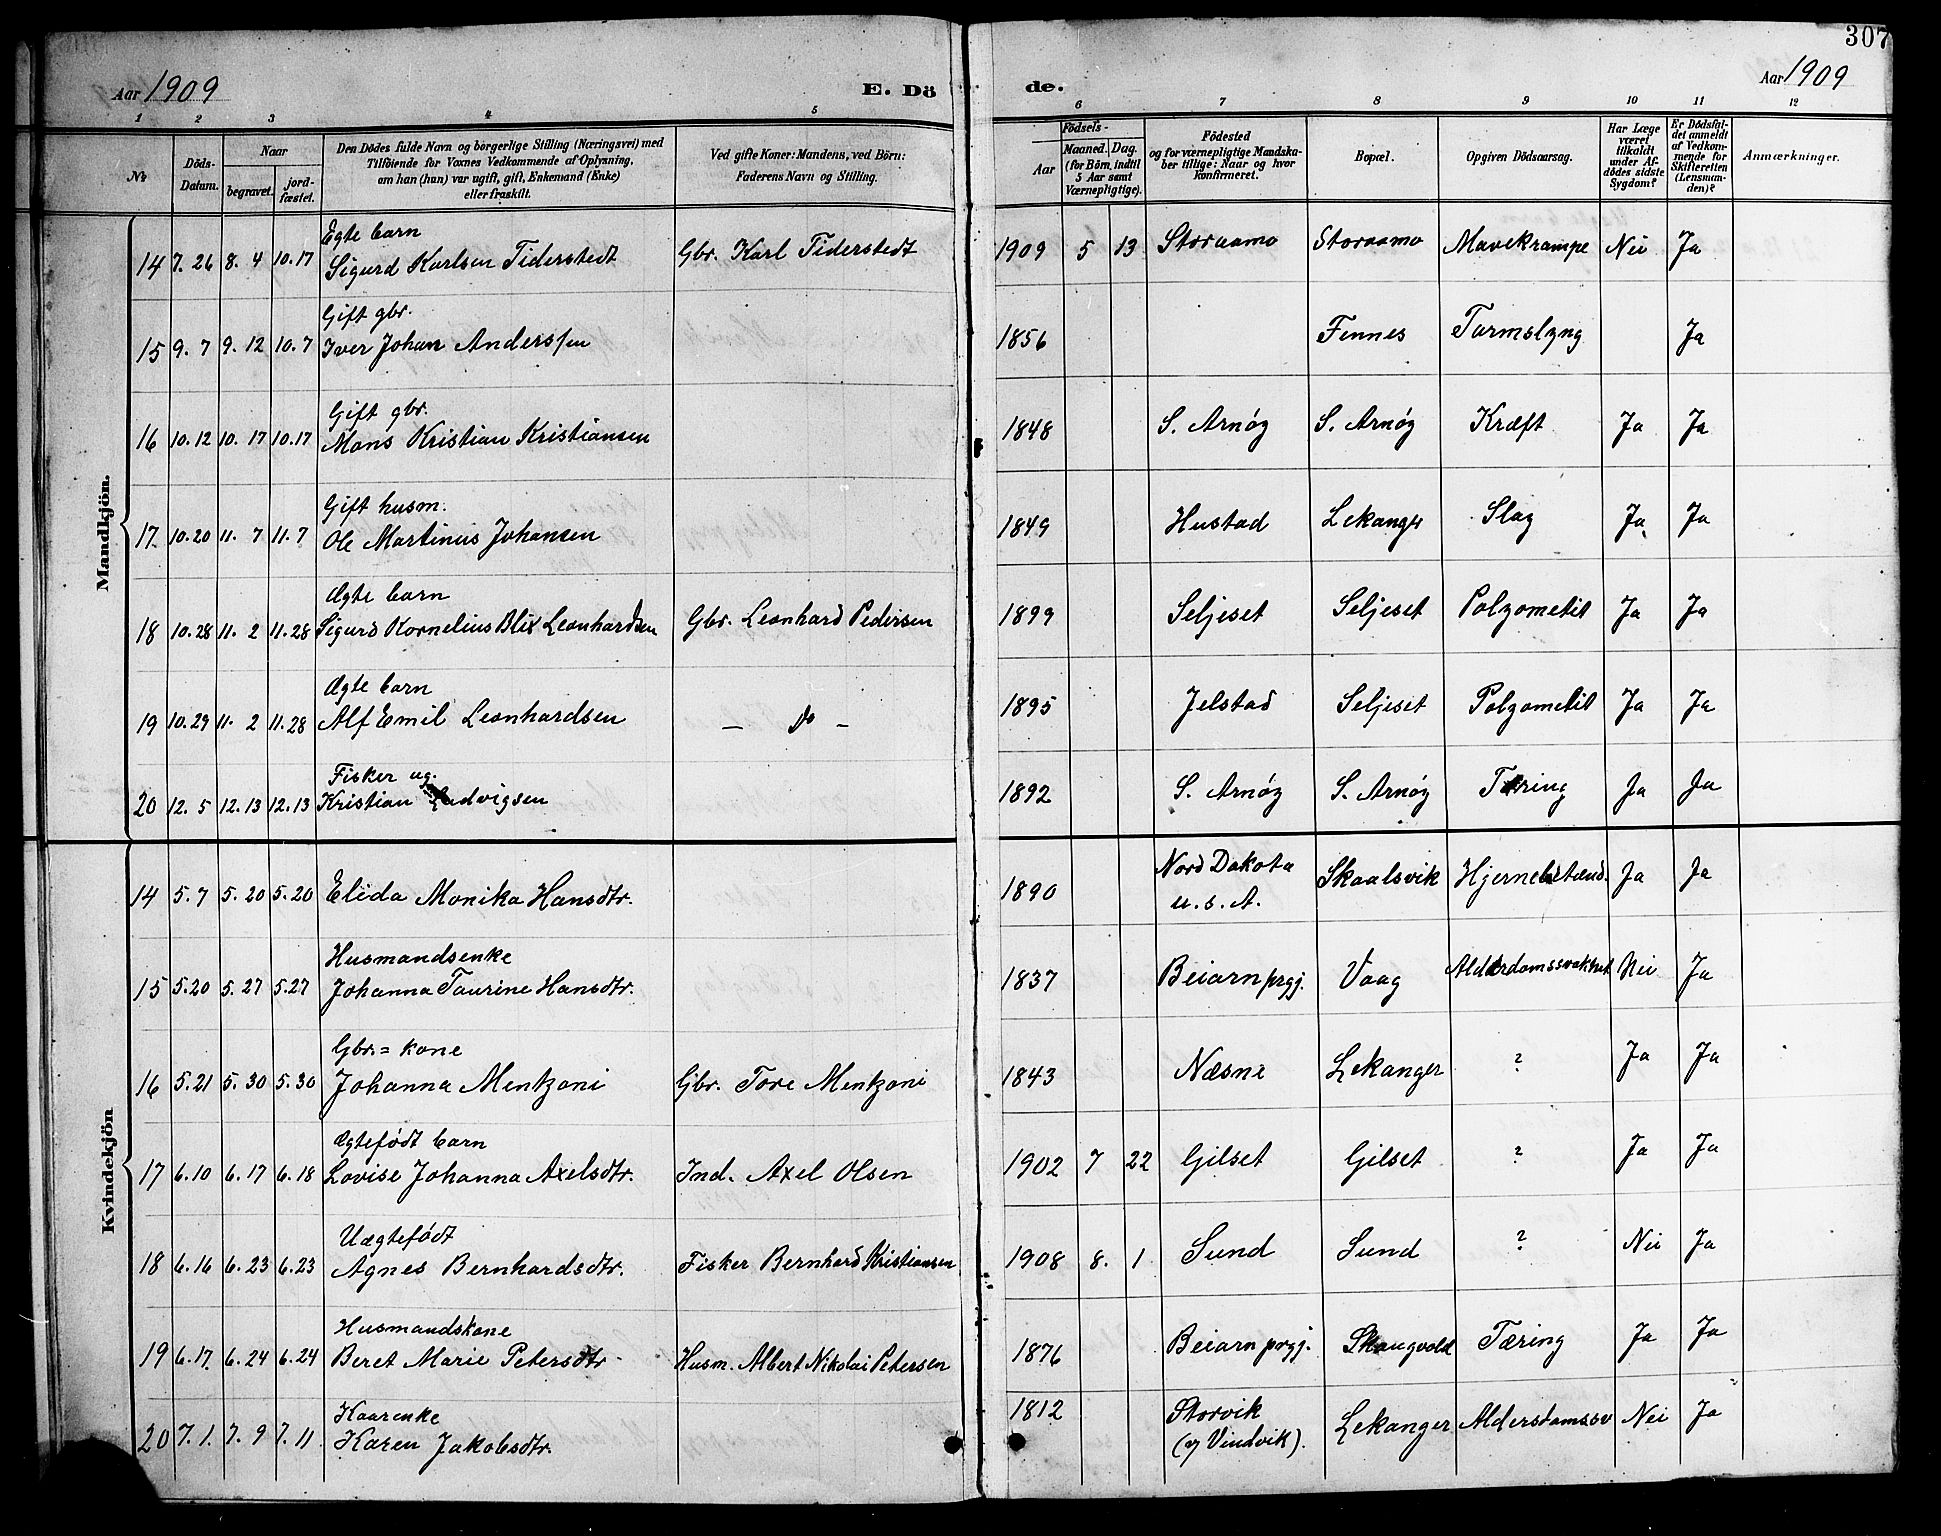 307
Aar 1909
E. Dö
de.
Aar 1909
1 2 3 4 5 6 7 8 9 10 11 12
№
Döds-Datum.
Naar
begravet.
jord-fæstet.
Den Dödes fulde Navn og borgerlige Stilling (Næringsvei) med
Tilföiende for Voxnes Vedkommende af Oplysning,
om han (hun) var ugift, gift, Enkemand (Enke)
eller fraskilt.
Ved gifte Koner: Mandens, ved Börn:
Faderens Navn og Stilling.
Födsels-
Aar
Maaned. Dag.
(for Börn indtil
5 Aar samt
Værnepligtige).
Födested
og for værnepligtige Mandska-
ber tillige: Naar og hvor
konfirmeret.
Bopæl.
Opgiven Dödsaarsag.
Har Læge
været
tilkaldt
under Af-
dödes sidste
Sygdom?
Er Dödsfal-
det anmeldt
af Vedkom-
mende for
Skifteretten
(Lensman-
den)?
Anmærkninger.
Mandkjön.
Egte barn
14 7.26 8. 4 10.17 Sigurd Karlsen Tiderstedt Gbr. Karl Tiderstedt 1909 5 13 Storaamo Storaamo Mavekrampe Nei Ja
Gift gbr.
15 9. 7 9. 12 10.7 Iver Johan Anderssen 1856 Finnes Tarmslyng Ja
Gift gbr.
16 10.12 10. 17 10.17 Mons Kristian Kristiansen 1848 S. Arnøy S. Arnøy Kræft Ja Ja
Gift husm.
17 10.20 11. 7 11. 7 Ole Martinus Johansen 1849 Hustad Lekanger Slag Ja Ja
Ægte barn
18 10.28 11. 2 11.28 Sigurd Kornelius Blix Leonhardsen Gbr. Leonhard Pedersen 1899 Seljeset Seljeset Polyometit Ja Ja
Ægte barn
19 10.29 11. 2 11.28 Alf Emil Leonhardsen — Do — 1895 Jelstad Seljeset Polyometit Ja Ja
Fisker ug.
20 12. 5 12. 13 12.13 Kristian Ludvigsen 1892 S. Arnøy S. Arnøy Tæring Ja Ja
Kvindekjön
14 5.7 5. 20 5.20 Elida Monika Hansdtr. 1890 Nord Dakota Skaalsvik Hjernebetænd. Ja Ja
u. s. A.
Husmandsenke
15 5.20 5. 27 5.27 Johanna Taurine Hansdtr. 1837 Beiarn prgj. Vaag Alderdomssvakhet Nei Ja
Gbr.= kone
16 5.21 5. 30 5.30 Johanna Mentzoni Gbr. Tore Mentzoni 1843 Næsne Lekanger ? Ja Ja
Ægtefødt barn
17 6.10 6. 17 6.18 Lovise Johanna Axelsdtr. Ind. Axel Olsen 1902 7 22 Gilset Gilset ? Ja Ja
Uægtefødt
18 6.16 6. 23 6.23 Agnes Bernhardsdtr. Fisker Bernhard Kristiansen 1908 8. 1 Sund Sund ? Nei Ja
Husmandskone
19 6.17 6. 24 6.24 Beret Marie Petersdtr Husm. Albert Nikolai Petersen 1876 Beiarn prgj. Skaugvold Tæring Ja Ja
Kaarenke
20 7.1. 7. 9 7. 11 Karen Jakobsdtr. 1812 Storvik Lekanger Alderstomssv Nei Ja
(v/ Vindvik).